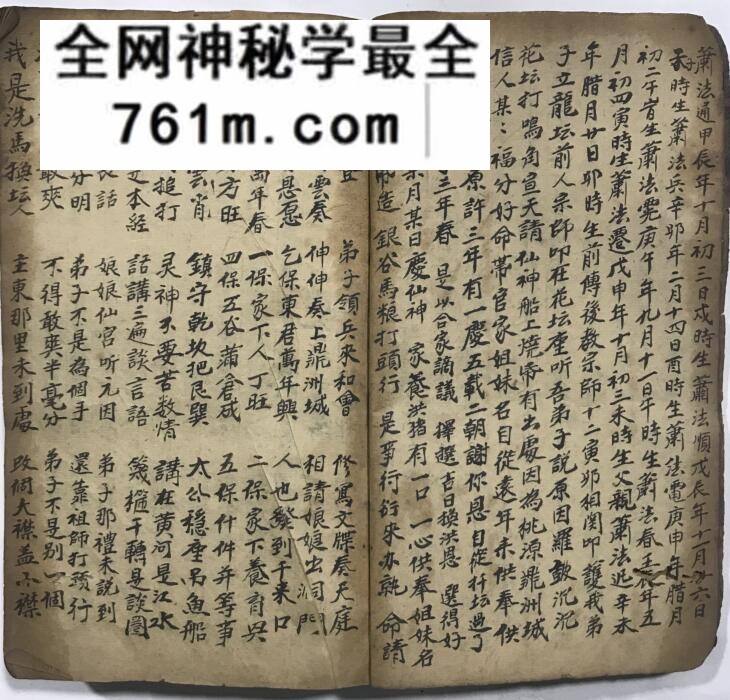 全网神秘学最全
761m.com
蕭法通甲辰年十月初三日戌時生蕭法順戊辰年十一月廿六日
子時生蕭法兵辛卯年二月十四日酉時生蕭法電庚申年腊月
初二午時生蕭法庚午年九月十一日午時生蕭法春壬辰年五
月初四寅時生蕭法遷戊申年十月初三未時生父親蕭法迅辛未
年腊月廿日卯時生前傳後教宗師十二寅卯相関叩護我弟
子立龍坛前人宗師叩在花坛座听吾弟子説原因羅皷沉沉
花坛打鳴角宣天請仙神船上燒帋有出處因為桃源鼎洲城
信人某々福分好命帶官家姐妹名目從遠年來供奉供
原許三年有一慶五载二朝謝你恩自從打坛過了
三年春 是以合家謫議 擇選吉日換洪恩 選得好
某月某日慶仙神 家養洪猪有一口 一心供奉姐妹名
帋造銀谷馬粮打頭行 是爭行衍來办執 命請
弟子領兵來和會 修寫文牒奏天庭
雲奏 伸伸奏上鼎洲城 相請娘娘出洞門
恳愿 乞保東君萬年興 人也發到千來口
萬年春 一保家下人丁旺 二保家下養育興
方旺 四保五谷蒲倉成 五保什件并等事
雲霄 鎮守乾坎把艮巽 太公穩座吊魚船
搥打 灵神不要苦数情 講在黄河是江水
本經 話講三遍談言語 篾箍千轉急談圈
長話 娘娘仙宮听元因 弟子那禮未說到
分明 弟子不是為個手 還靠祖師打頭行
敢爽 不得敢爽半毫分 弟子不是別一個
我是洗馬換坛人 主東那里未到處 改個大襟盖小襟